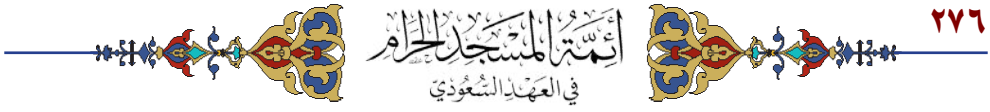 ٢٧٦
أَئِمَّةُ المَسْجِدِ الحَرَامِ
في العَهْدِ السُّعُودِيّ